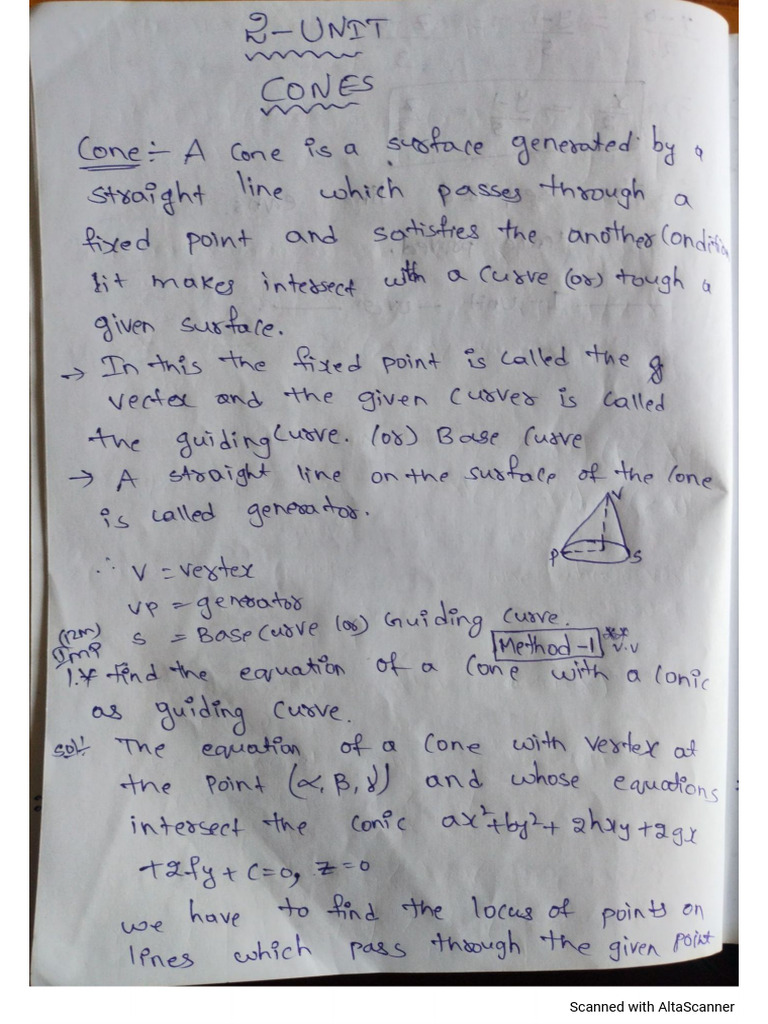 2-UNIT
CONES
Cone:- A cone is a surface generated by a
straight line which passes through a
fixed point and satisfies the another condition
it makes intersect with a curve (or) tough a
given surface.
→ In this the fixed point is called the
vectex and the given curves is called
the guiding curve. (or) Base curve
→ A straight line on the surface of the cone
is called generator.
V
P
S
∴ V = vertex
VP = generator
S = Base curve (or) Guiding curve.
(12M)
Imp
Method-1
** V.V
1.* find the equation of a cone with a conic
as guiding curve.
Sol:- The equation of a cone with vertex at
the point (α, β, γ) and whose equations
intersect the conic ax²+by²+2hxy+2gx
+2fy+c=0, z=0
we have to find the locus of points on
lines which pass through the given point
Scanned with AltaScanner